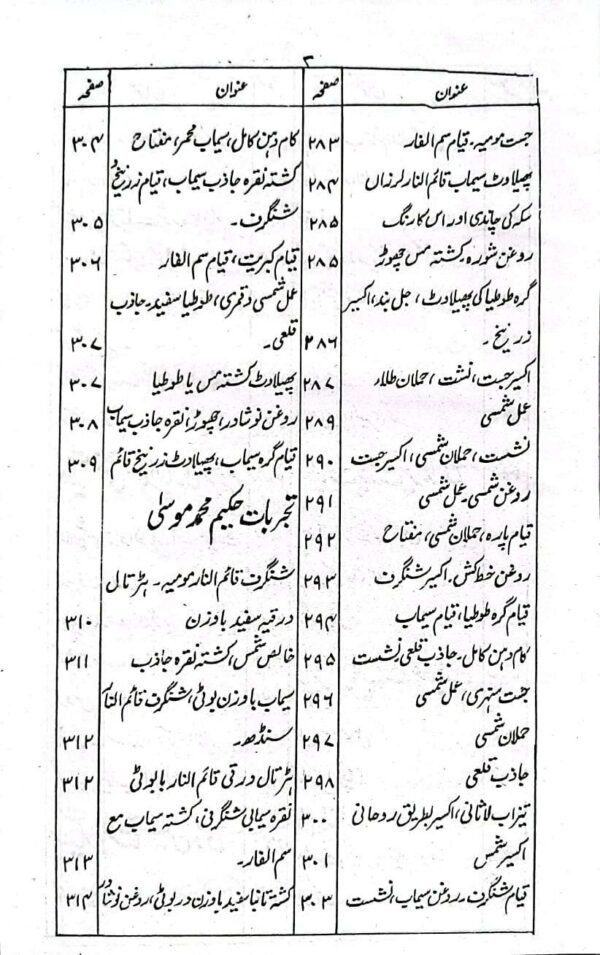 ۳
عنوان صفحہ
جست مومیہ۔ قیام سم الفار ۲۸۳
پھیلاوٹ سیماب قائم النار لرزاں ۲۸۴
سکہ کی چاندی اور اس کا رنگ ۲۸۵
روغن شورہ۔ کشتہ مس چھوڑ ۲۸۵
گرہ طوطیا کی پھیلاوٹ، جل بند، اکسیر
زرنیخ۔ ۲۸۶
اکسیر جست، نشست، حملان طلاء ۲۸۷
عمل شمسی ۲۸۹
نشست، حملان شمسی، اکسیر جست ۲۹۰
روغن شمسی۔ عمل شمسی ۲۹۱
قیام پارہ، حملان شمسی، مفتاح ۲۹۲
روغن خط کش۔ اکسیر شنگرف ۲۹۳
قیام گرہ طوطیا، قیام سیماب ۲۹۴
کام دہن کامل۔ جاذب قلعی نشست ۲۹۵
جست سنہری، عمل شمسی ۲۹۶
حملان شمسی ۲۹۷
جاذب قلعی ۲۹۸
تیزاب لاثانی، اکسیر بطریق روحانی ۳۰۰
اکسیر شمس ۳۰۱
قیام شنگرف۔ روغن سیماب، نشست ۳۰۳
عنوان صفحہ
کام دہن کامل، سیماب محمر، مفتاح ۳۰۴
کشتہ نقرہ جاذب سیماب، قیام زرنیخ و
شنگرف۔ ۳۰۵
قیام کبریت، قیام سم الفار ۳۰۶
عمل شمسی و قمری، طوطیا سفید۔ جاذب
قلعی۔ ۳۰۷
پھیلاوٹ کشتہ مس یا طوطیا ۳۰۷
روغن نوشادر، چھوڑ، نقرہ جاذب سیماب ۳۰۸
قیام گرہ سیماب، پھیلاوٹ زرنیخ قائم ۳۰۹
تجربات حکیم محمد موسیٰ
شنگرف قائم النار مومیہ۔ ہڑتال
ورقیہ سفید باوزن ۳۱۰
خالص شمس، کشتہ نقرہ جاذب ۳۱۱
سیماب باوزن بوٹی، شنگرف قائم النار
سنڈھ۔ ۳۱۲
ہڑتال ورقی قائم النار بابوٹی ۳۱۲
نقرہ سیمابی شنگرفی، کشتہ سیماب مع
سم الفار۔ ۳۱۳
کشتہ تانبا سفید باوزن در بوٹی، روغن نوشادر ۳۱۴